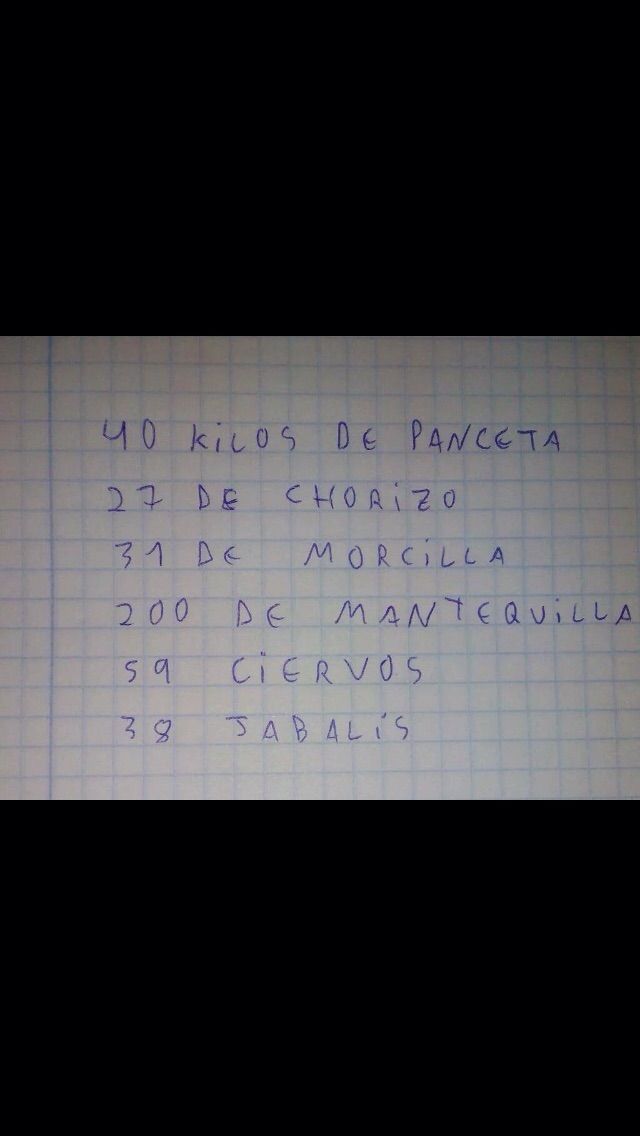 40 KiLOS DE PANCETA
27 DE CHORiZO
31 DE MORCiLLA
200 DE MANTEQUiLLA
59 CiERVOS
38 JABALiS